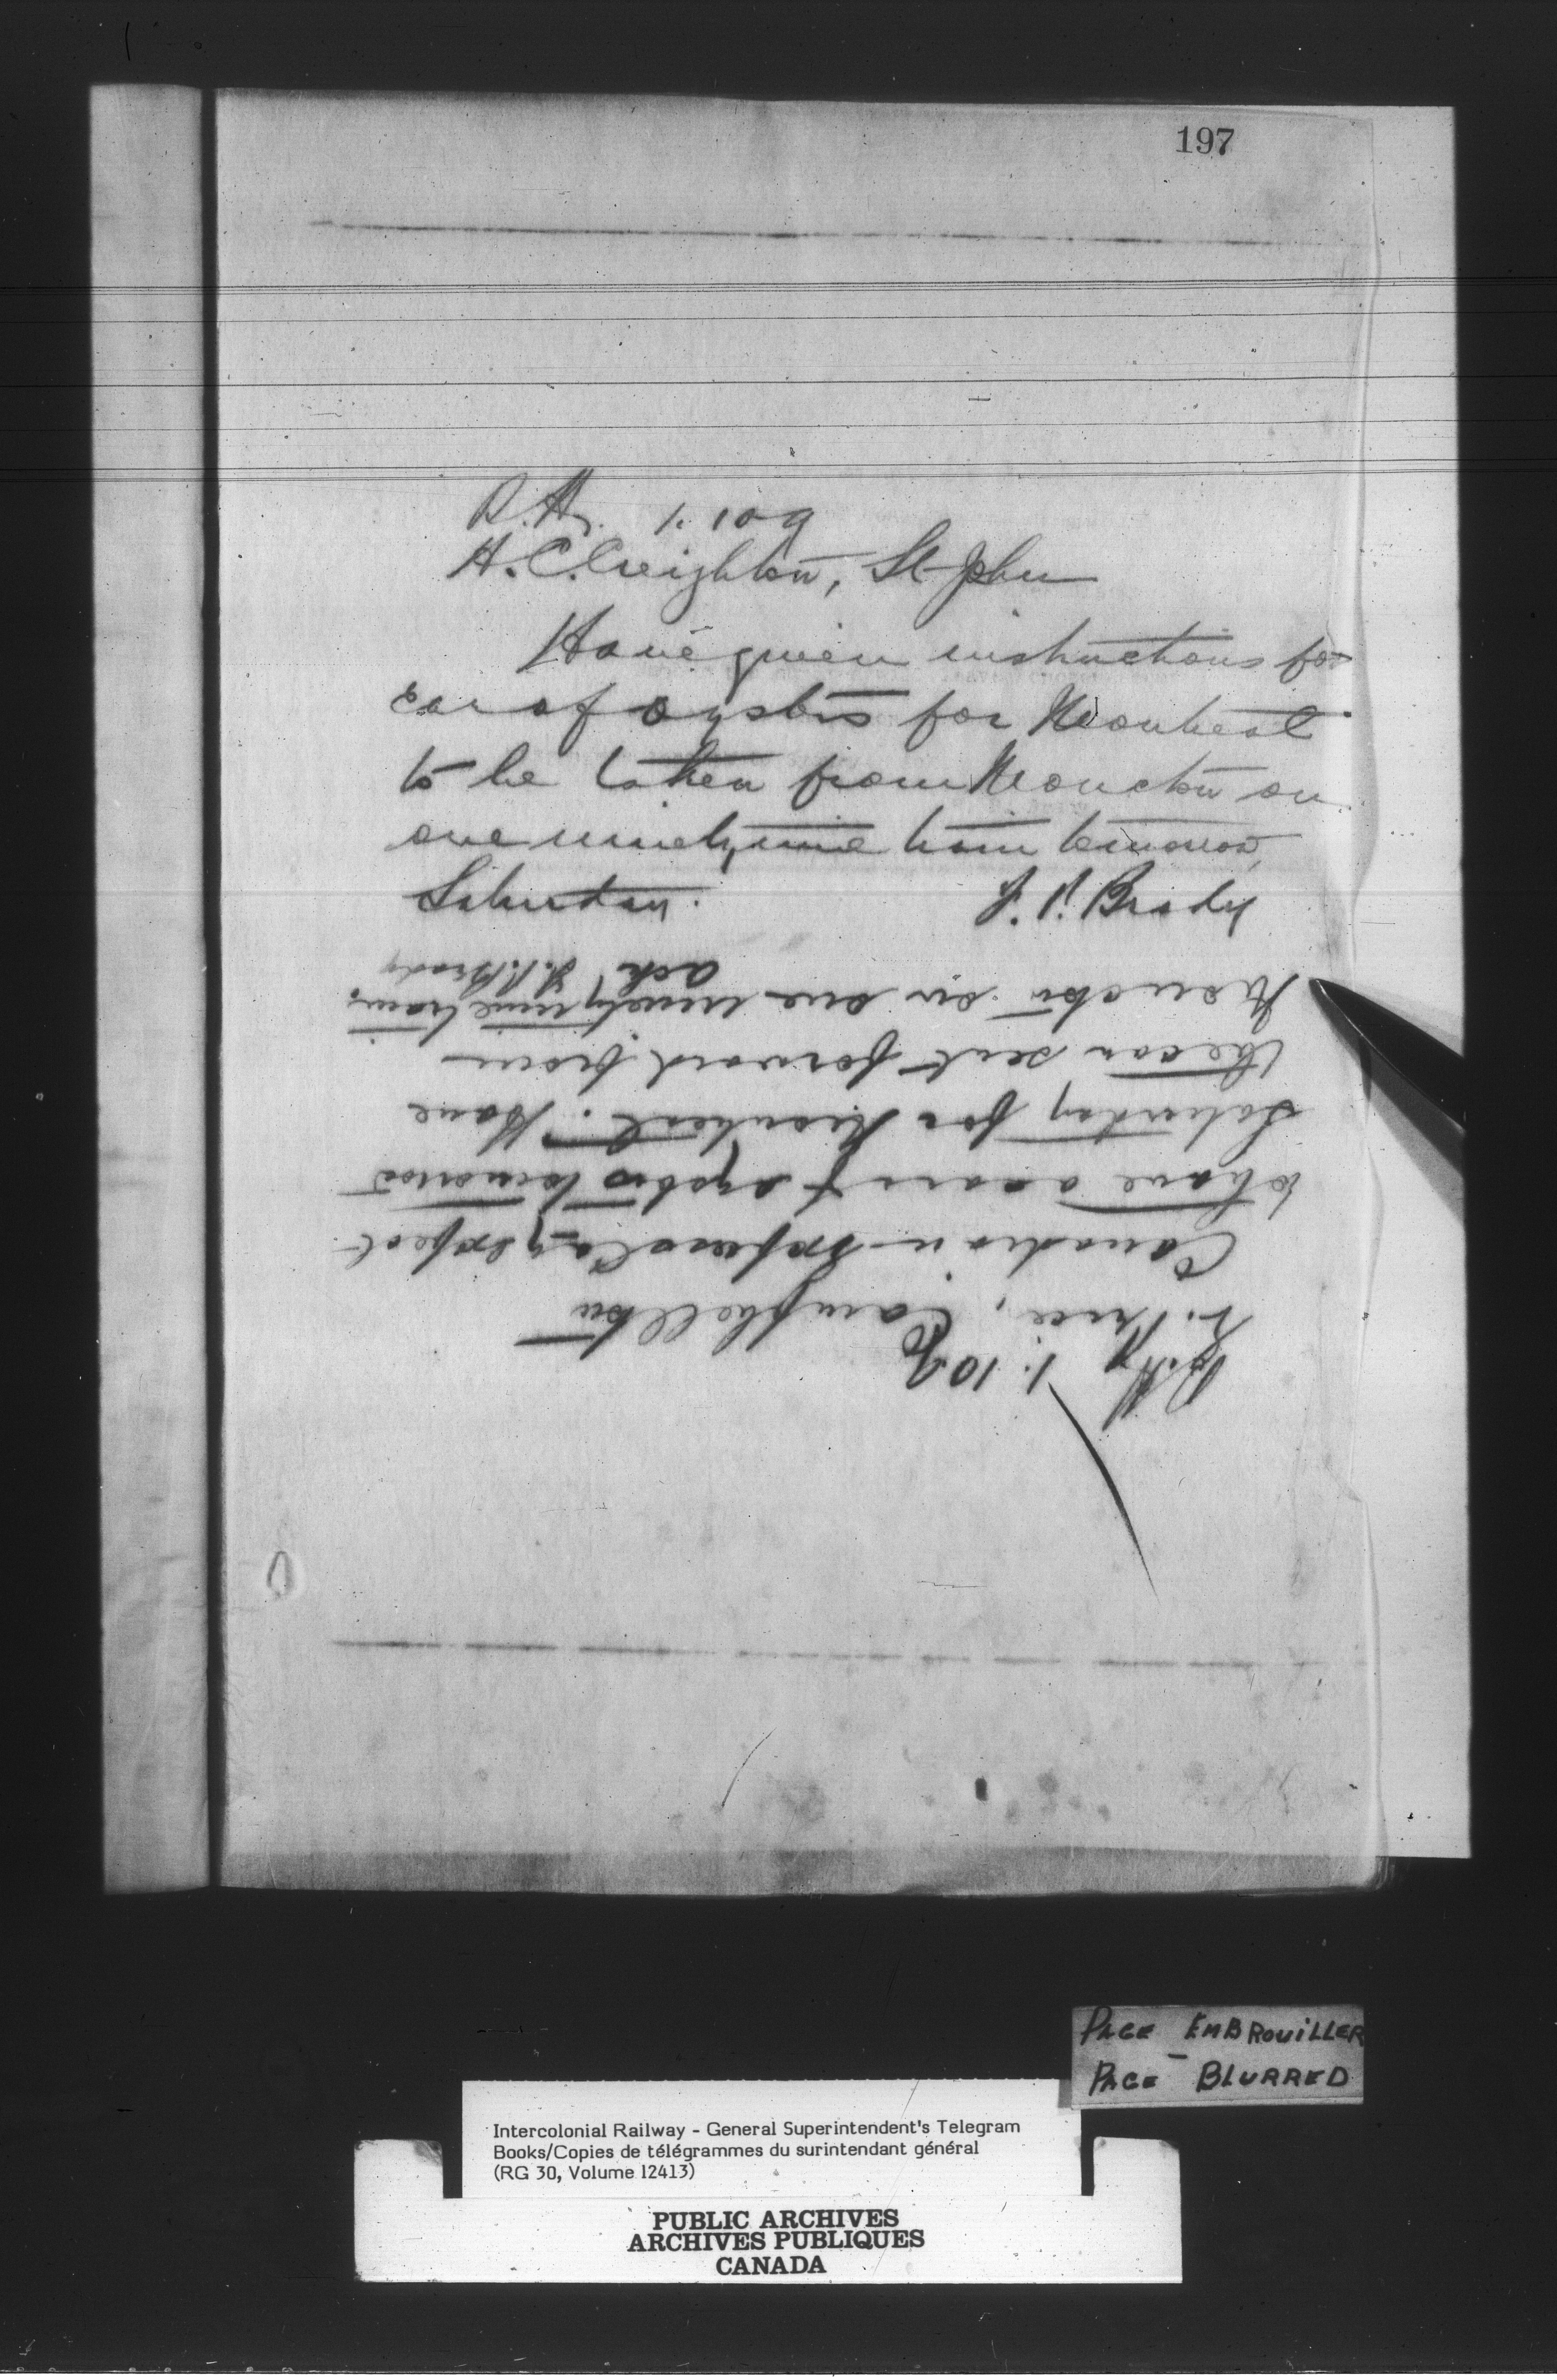 197
R.H. 1.10 g
H.C. Creighton, St John
Have given instructions for
car of oysters for Montreal
to be taken from Moncton on
one ninety nine train tomorrow,
Saturday.
F.P. Brady
R.H. 1.10 g
L. Price, Campbellton
Canadian Express Coy expect
to have a car of oysters tomorrow
Saturday for Montreal. Have
the car sent forward from
Moncton on one ninety nine train.
ack F.P. Brady
PAGE EMBROUILLER
PAGE - BLURRED
Intercolonial Railway - General Superintendent's Telegram
Books/Copies de télégrammes du surintendant général
(RG 30, Volume 12413)
PUBLIC ARCHIVES
ARCHIVES PUBLIQUES
CANADA